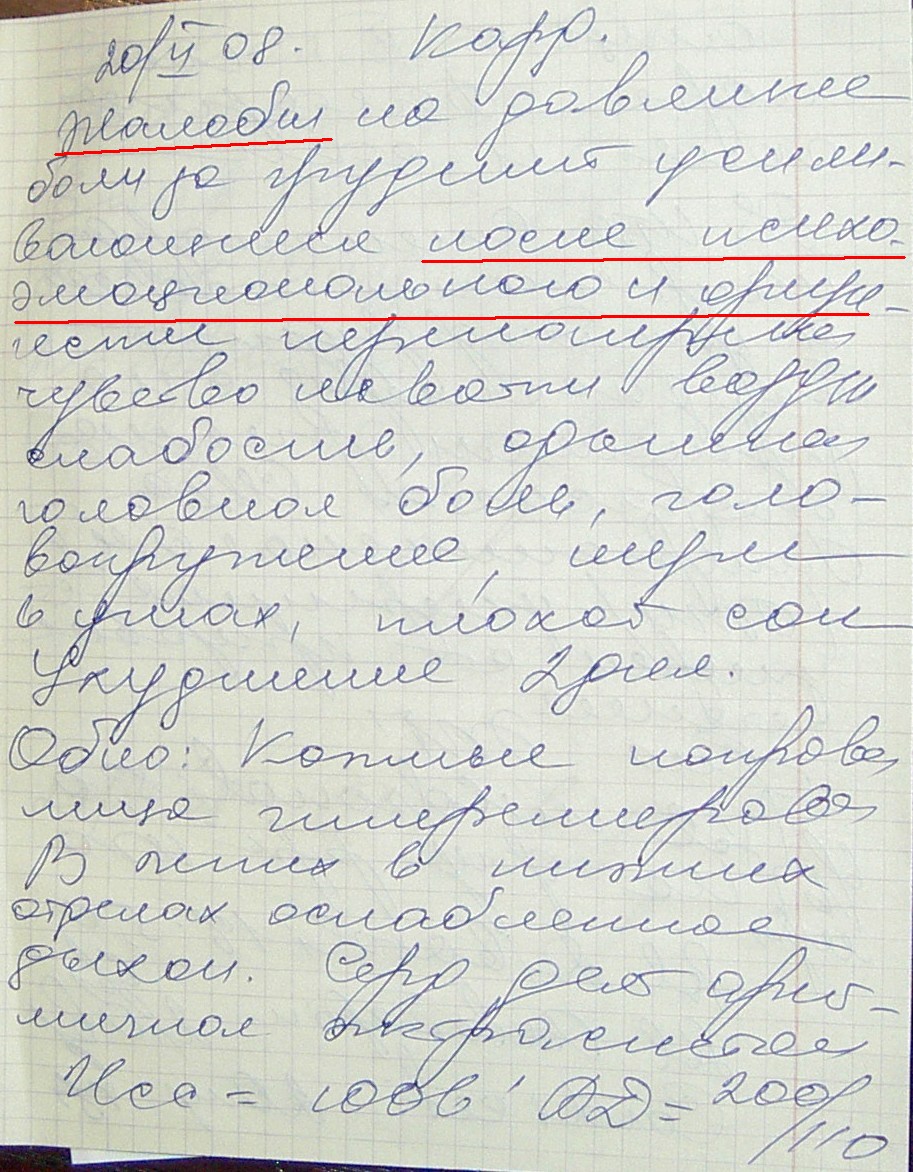 20/V 08. Кард.
Жалобы на давящие
боли за грудиной усили-
вающиеся после психо-
эмоционального и физи-
чести перенапряжен
чувство нехватки возду
слабость, одышка
головная боль, голо-
вокружение, шум
в ушах, плохой сон
Ухудшение 2 дня.
Обно: Кожные покрова
лица гиперемирова
В легких в нижних
отделах ослабленное
дыхан. Серд деят арит-
мичная экстрасистол
Чсс = 100 в ' АД = 200/110